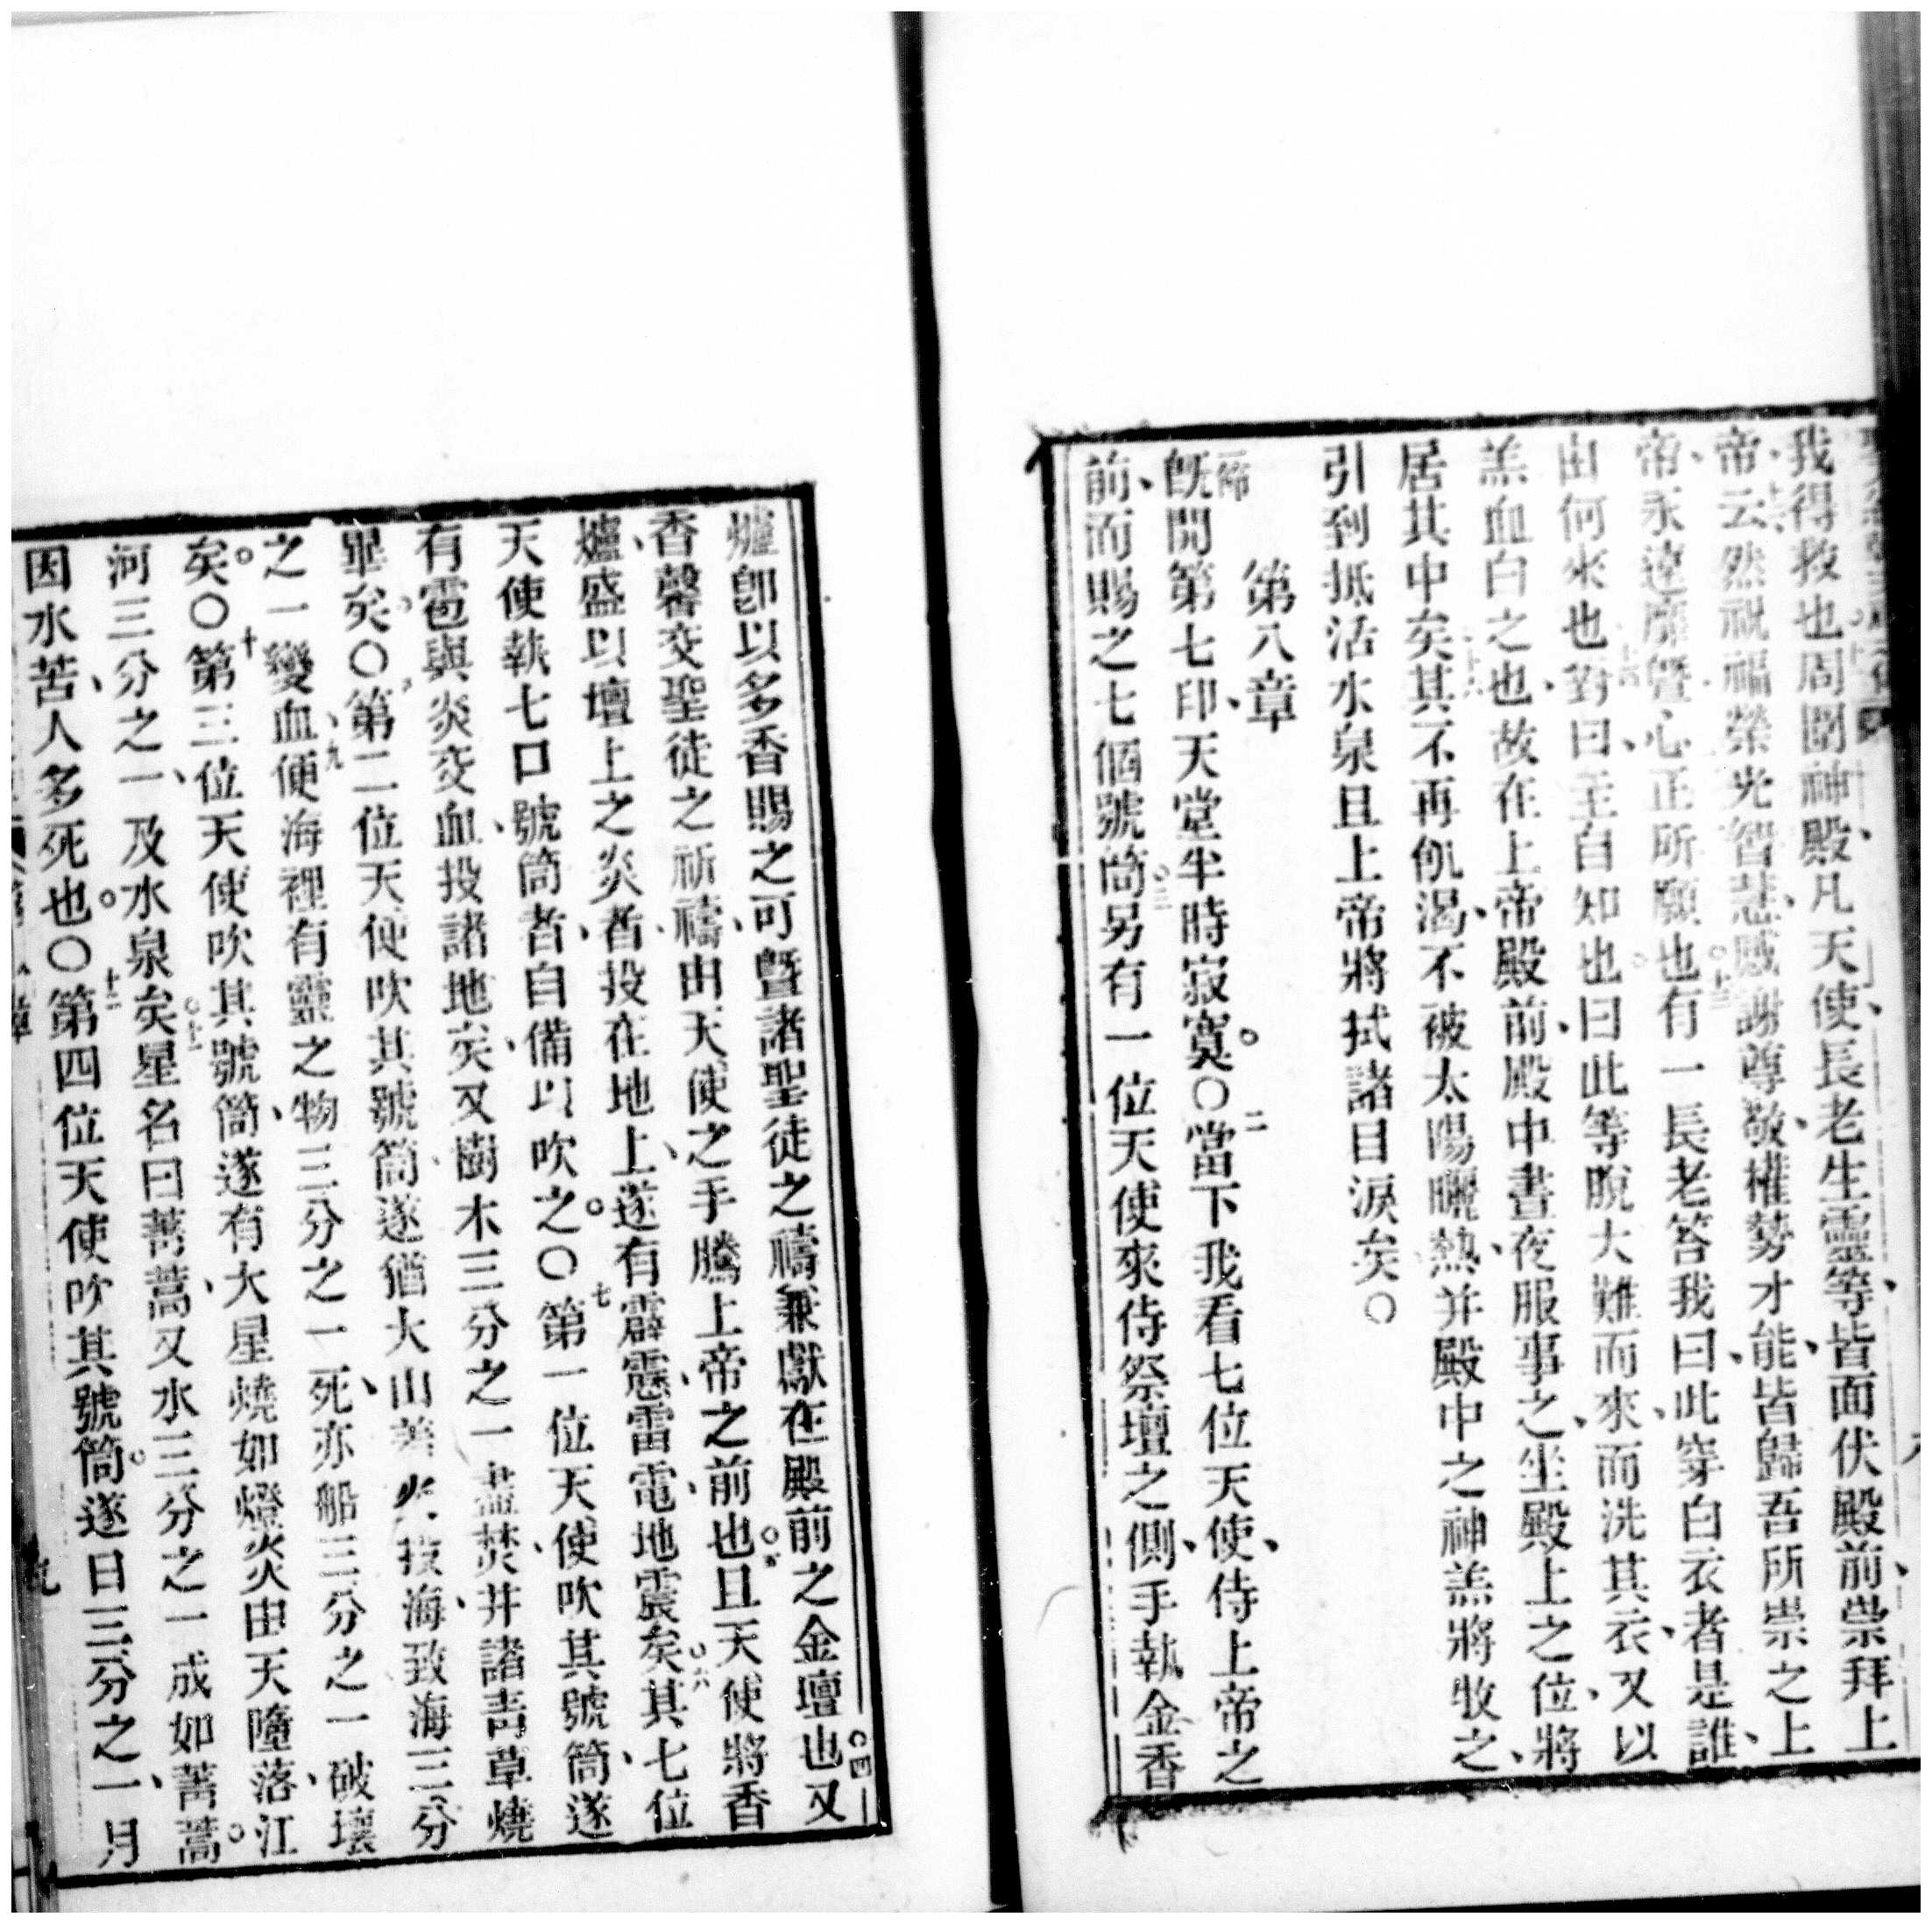 我得救也周圍神殿凡天使、長老生靈等、皆面伏殿前、崇拜上
帝、云然祝福榮光智慧、感謝尊敬、權勢才能、皆歸吾所崇之上
帝、永遠靡曁心正所願也有一長老答我曰、此穿白衣者是誰、
由何來也對曰、主自知也曰此等脫大難而來、而洗其衣、又以
羔血白之也、故在上帝殿前、殿中晝夜服事之、坐殿上之位、將
居其中矣其不再飢渴、不被太陽曬熱、并殿中之神羔將牧之、
引到抵活水泉且上帝將拭諸目淚矣○
第八章
一節
既開第七印、天堂半時寂寞。○二當下我看七位天使、侍上帝之
前、而賜之七個號筒三另有一位天使來侍祭壇之側、手執金香
爐卽以多香賜之可曁諸聖徒之禱兼獻在殿前之金壇也四又
香馨交聖徒之祈禱、由天使之手騰上帝之前也五且天使將香
爐、盛以壇上之炎者、投在地上、遂有霹靂、雷電、地震矣六其七位
天使執七口、號筒者、自備以吹之。○七第一位天使吹其號筒、遂
有雹與炎交血、投諸地矣、又樹木三分之一盡焚、并諸青草燒
畢矣○第二位天使吹其號筒、遂猶大山著火投海、致海三分
之一變血、九便海裡有靈之物三分之一死、亦船三分之一破壞
矣。○十第三位天使吹其號筒、遂有大星燒如燈炎由天隨落、江
河三分之一、及水泉矣十一星名曰菁蒿、又水三分之一成如菁蒿。
因水苦、人多死也。○十二第四位天使吹其號筒。遂日三分之一、月
八
九